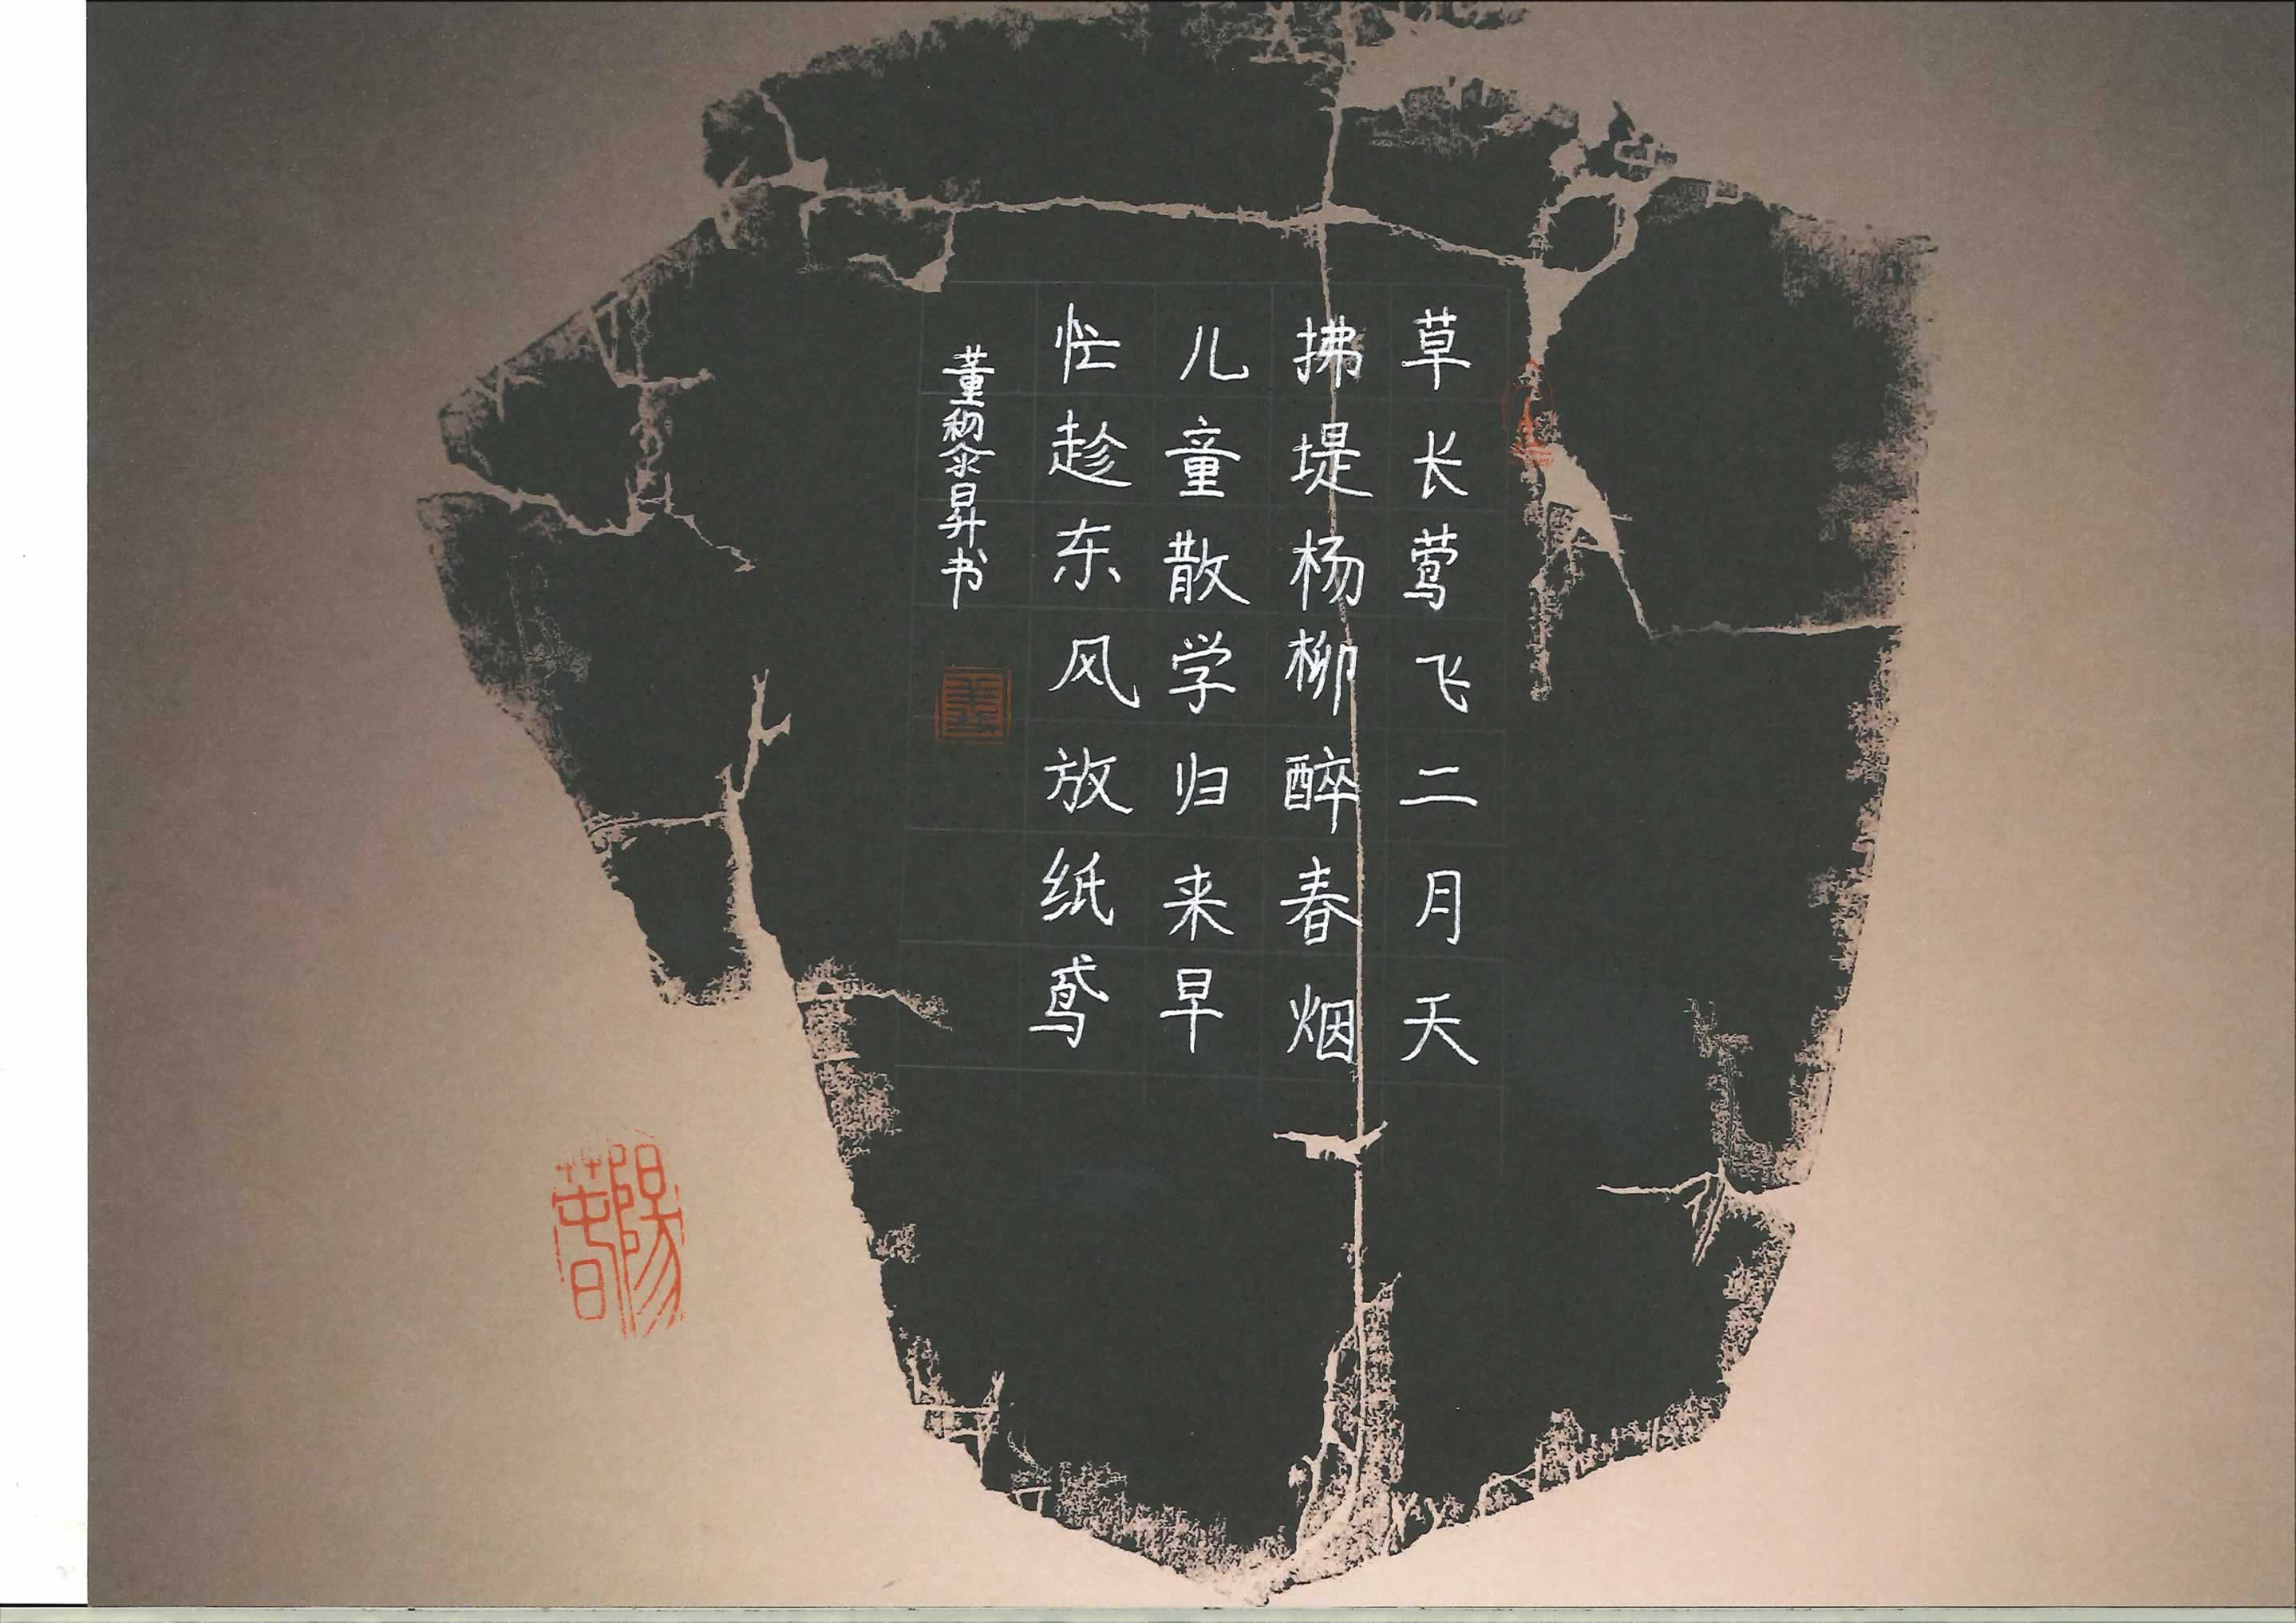 草长莺飞二月天
拂堤杨柳醉春烟
儿童散学归来早
忙趁东风放纸鸢
董 昇书